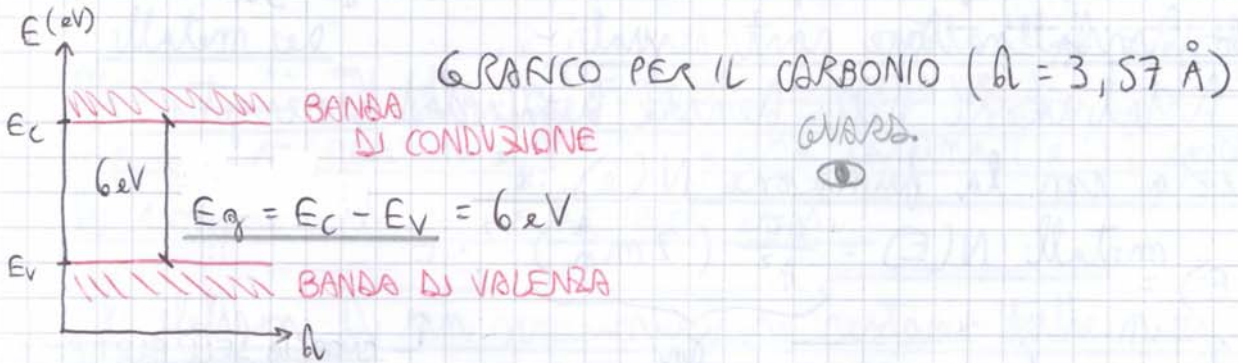 E(eV)
GRAFICO PER IL CARBONIO (a = 3,57 Å)
BANDA
DI CONDUZIONE
Ec
GUARD.
6eV
Eg = Ec - Ev = 6eV
Ev
BANDA DI VALENZA
a